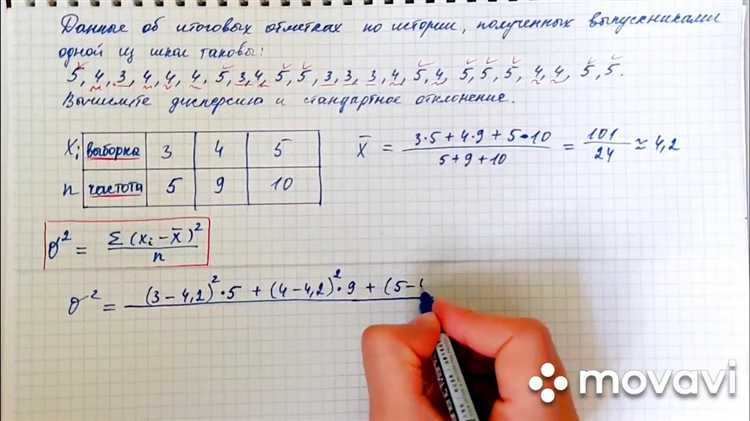 Данные об итоговых отметках по истории, полученных выпускниками
одной из школ таковы:
5, 4, 3, 4, 4, 4, 5, 3, 4, 5, 5, 3, 3, 3, 4, 5, 4, 5, 5, 5, 4, 4, 5, 5.
Вычислите дисперсию и стандартное отклонение.
Xi выборка 3 4 5
n частота 5 9 10
x̄ = (3·5 + 4·9 + 5·10) / (5 + 9 + 10) = 101 / 24 ≈ 4,2
σ² = Σ (xi − x̄)² / n
σ² = (3 − 4,2)² · 5 + (4 − 4,2)² · 9 + (5 −
movavi